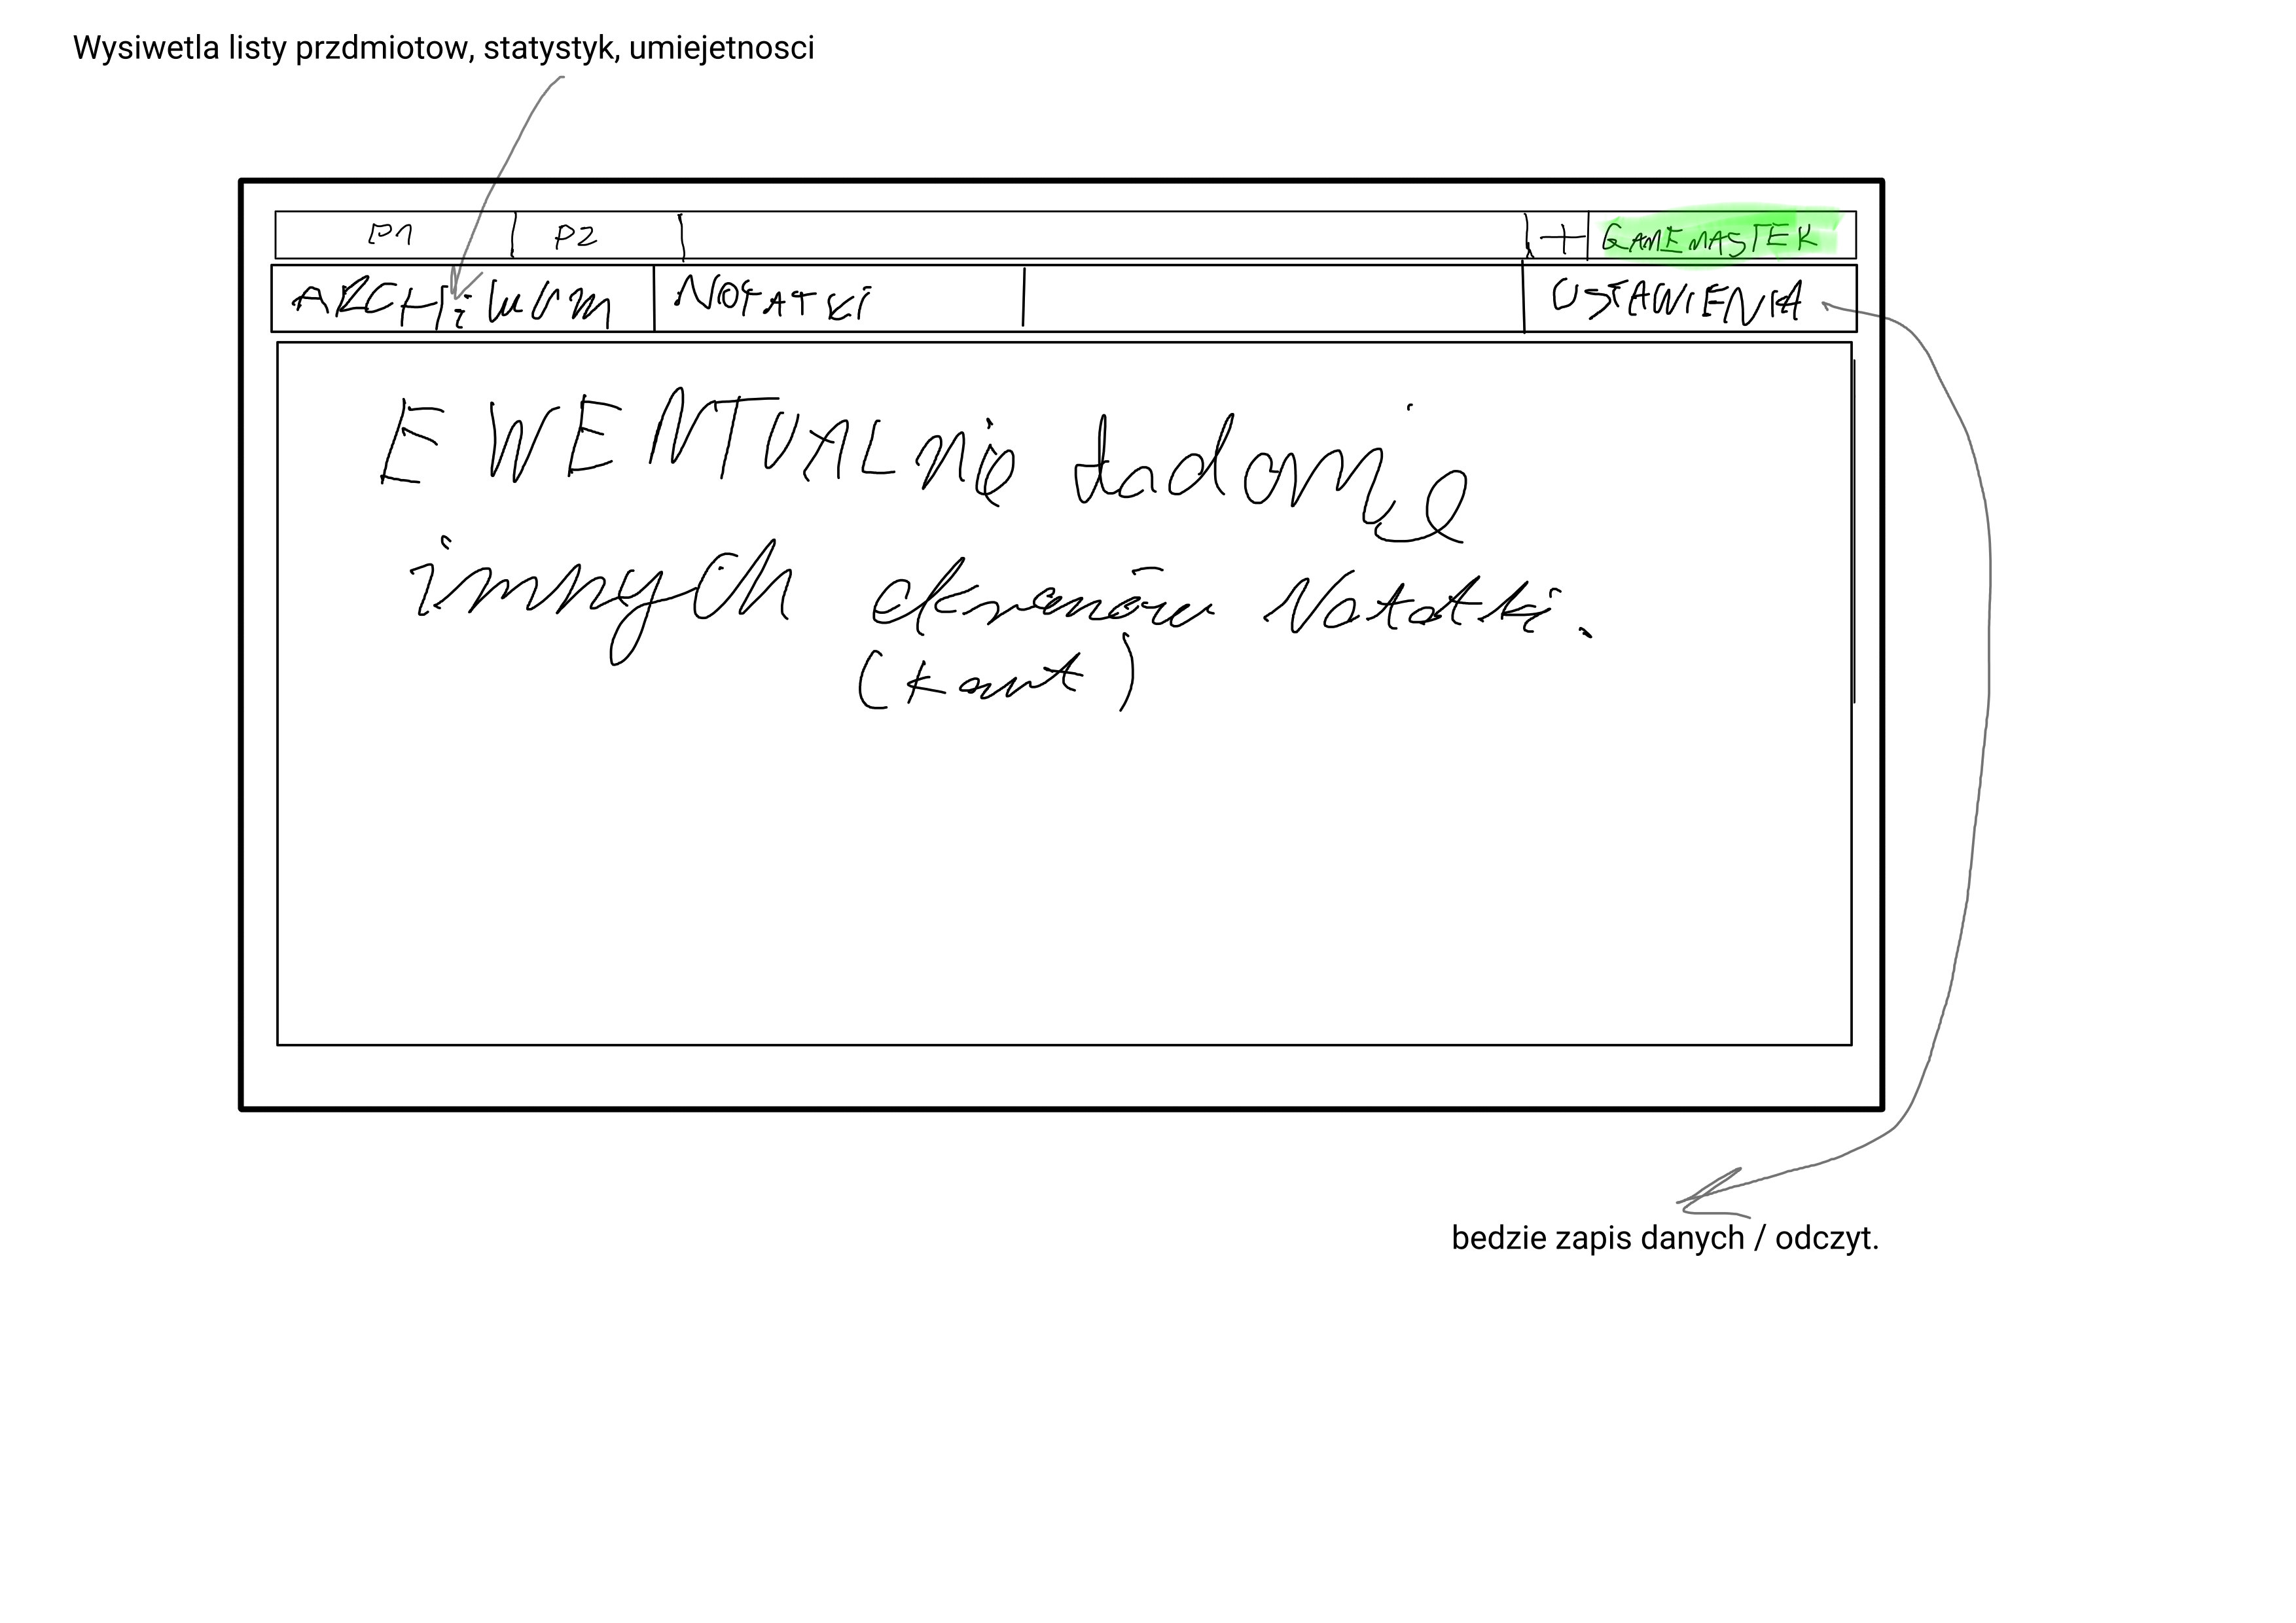 Wysiwetla listy przdmiotow, statystyk, umiejetnosci
P1 P2 + GAMEMASTER
ARCHiWUM NOTATKi USTAWIENIA
EWENTUALnie ładownie
innych ekranów Notatki.
bedzie zapis danych / odczyt.